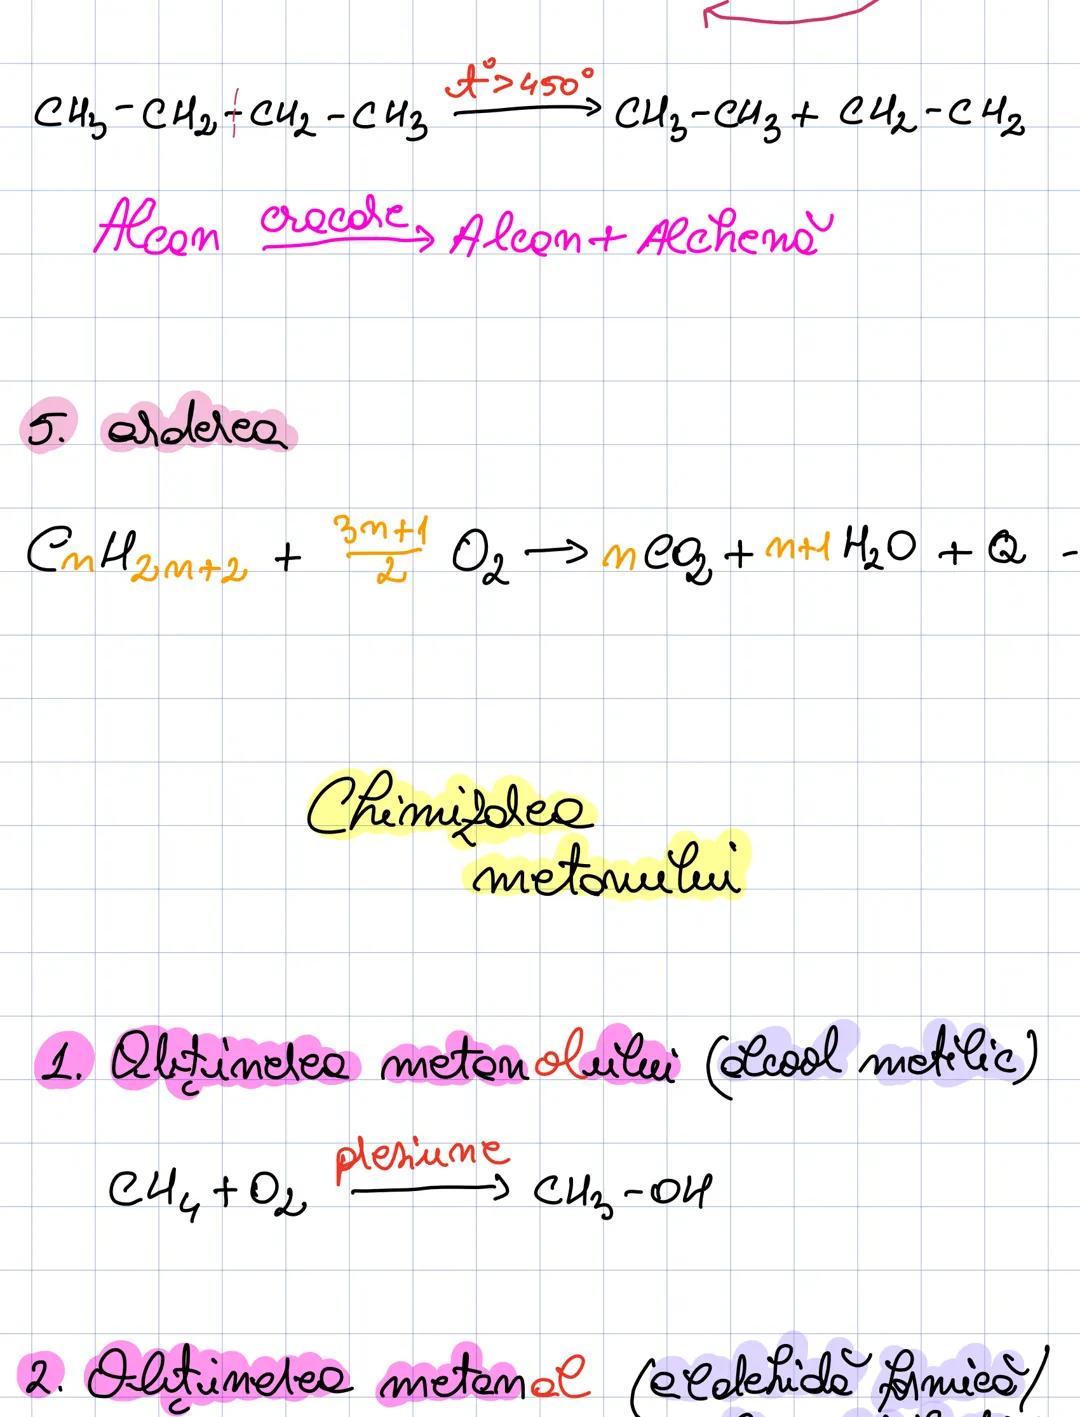 t°>450°
CH₃-CH₂+CH₂-CH₃ → CH₃-CH₃ + CH₂-CH₂
Alcan cracare → Alcan + Alchenă
5. arderea
CnH2n+2 + 3n+1/2 O₂ → nCO₂ + n+1 H₂O + Q -
Chimizarea
metanului
1. Obținerea metanolului (alcool metilic)
presiune
CH₄ + O₂ → CH₃-OH
2. Obținerea metanal (aldehidă formică/